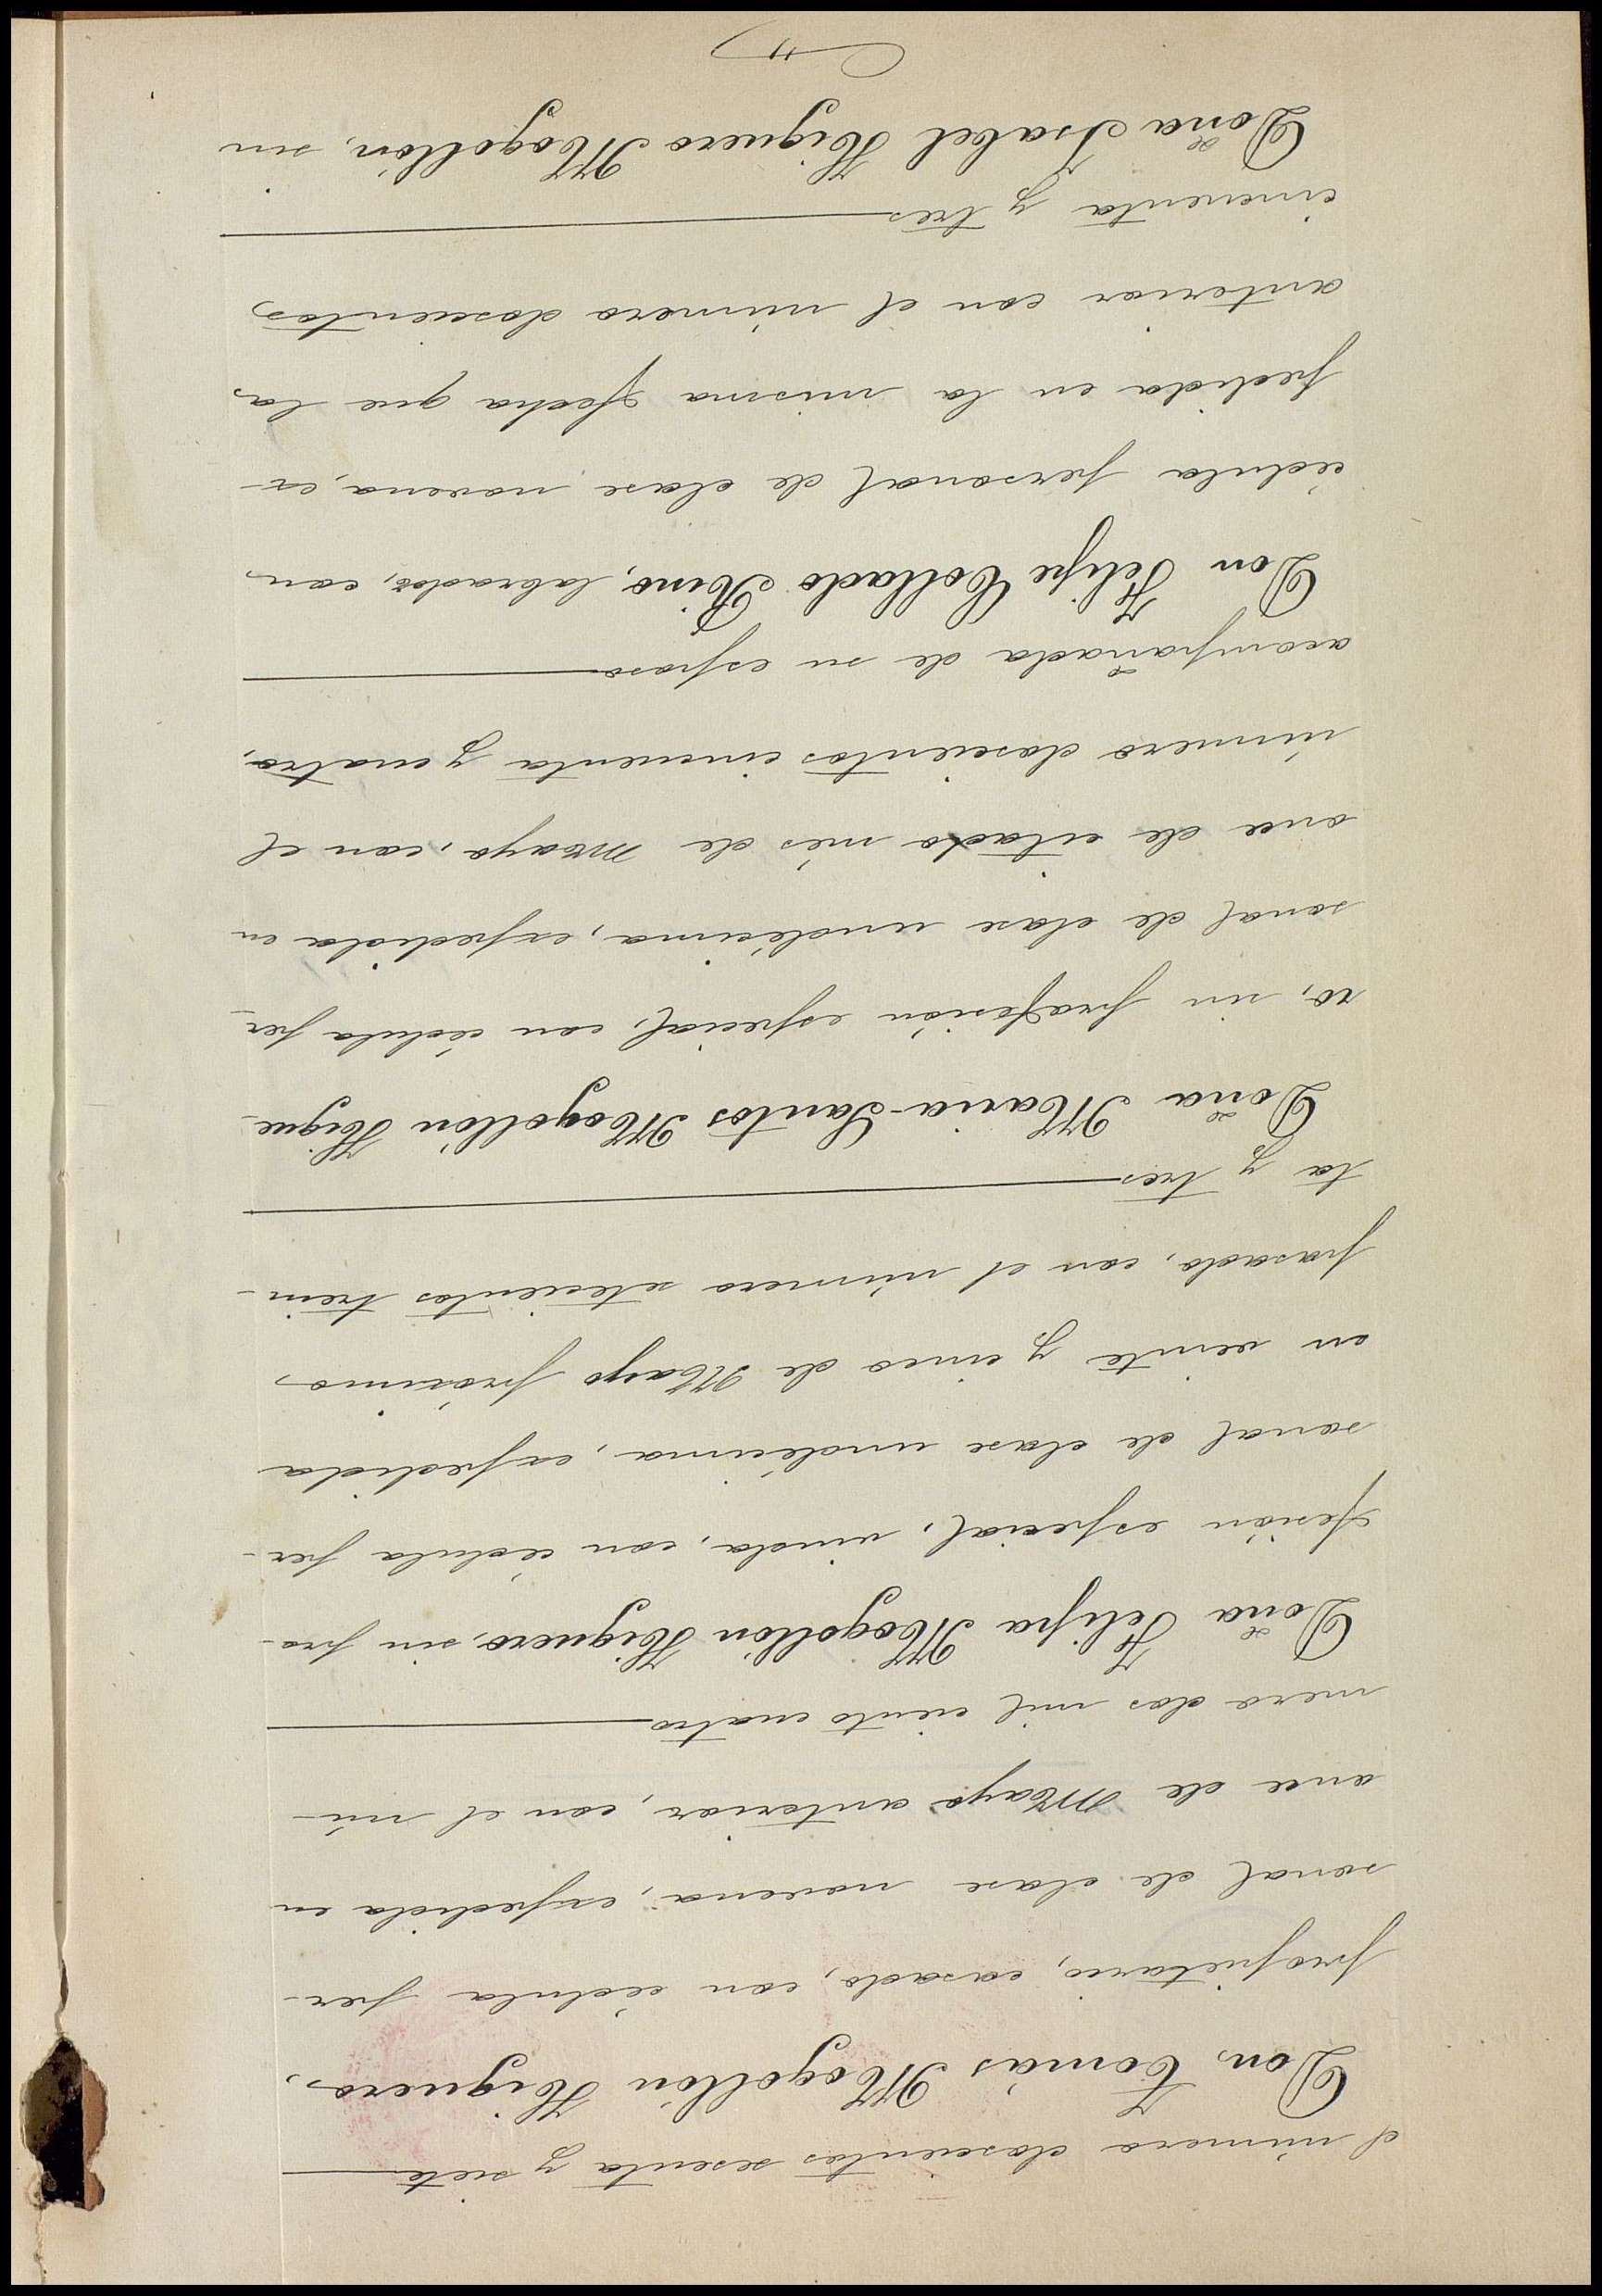 el número doscientos sesenta y siete
Don Tomás Mogollón Higuero,
propietario, casado, con cédula per-
sonal de clase novena, expedida en
once de Mayo anterior, con el nú-
mero dos mil ciento cuatro
Doña Felipa Mogollón Higuero, sin pro-
fesión especial, viuda, con cédula per-
sonal de clase undécima, expedida
en veinte y cinco de Mayo próximo
pasado, con el número setecientos trein-
ta y tres
Doña Maria-Santos Mogollón Higue-
ro, sin profesión especial, con cédula per-
sonal de clase undécima, expedida en
once de citado més de Mayo, con el
número doscientos cincuenta y cuatro,
acompañada de su esposo
Don Felipe Collado Pino, labrador, con
cédula personal de clase novena, ex-
pedida en la misma fecha que la
anterior con el número doscientos
cincuenta y tres
Doña Isabel Higuero Mogollón, sin